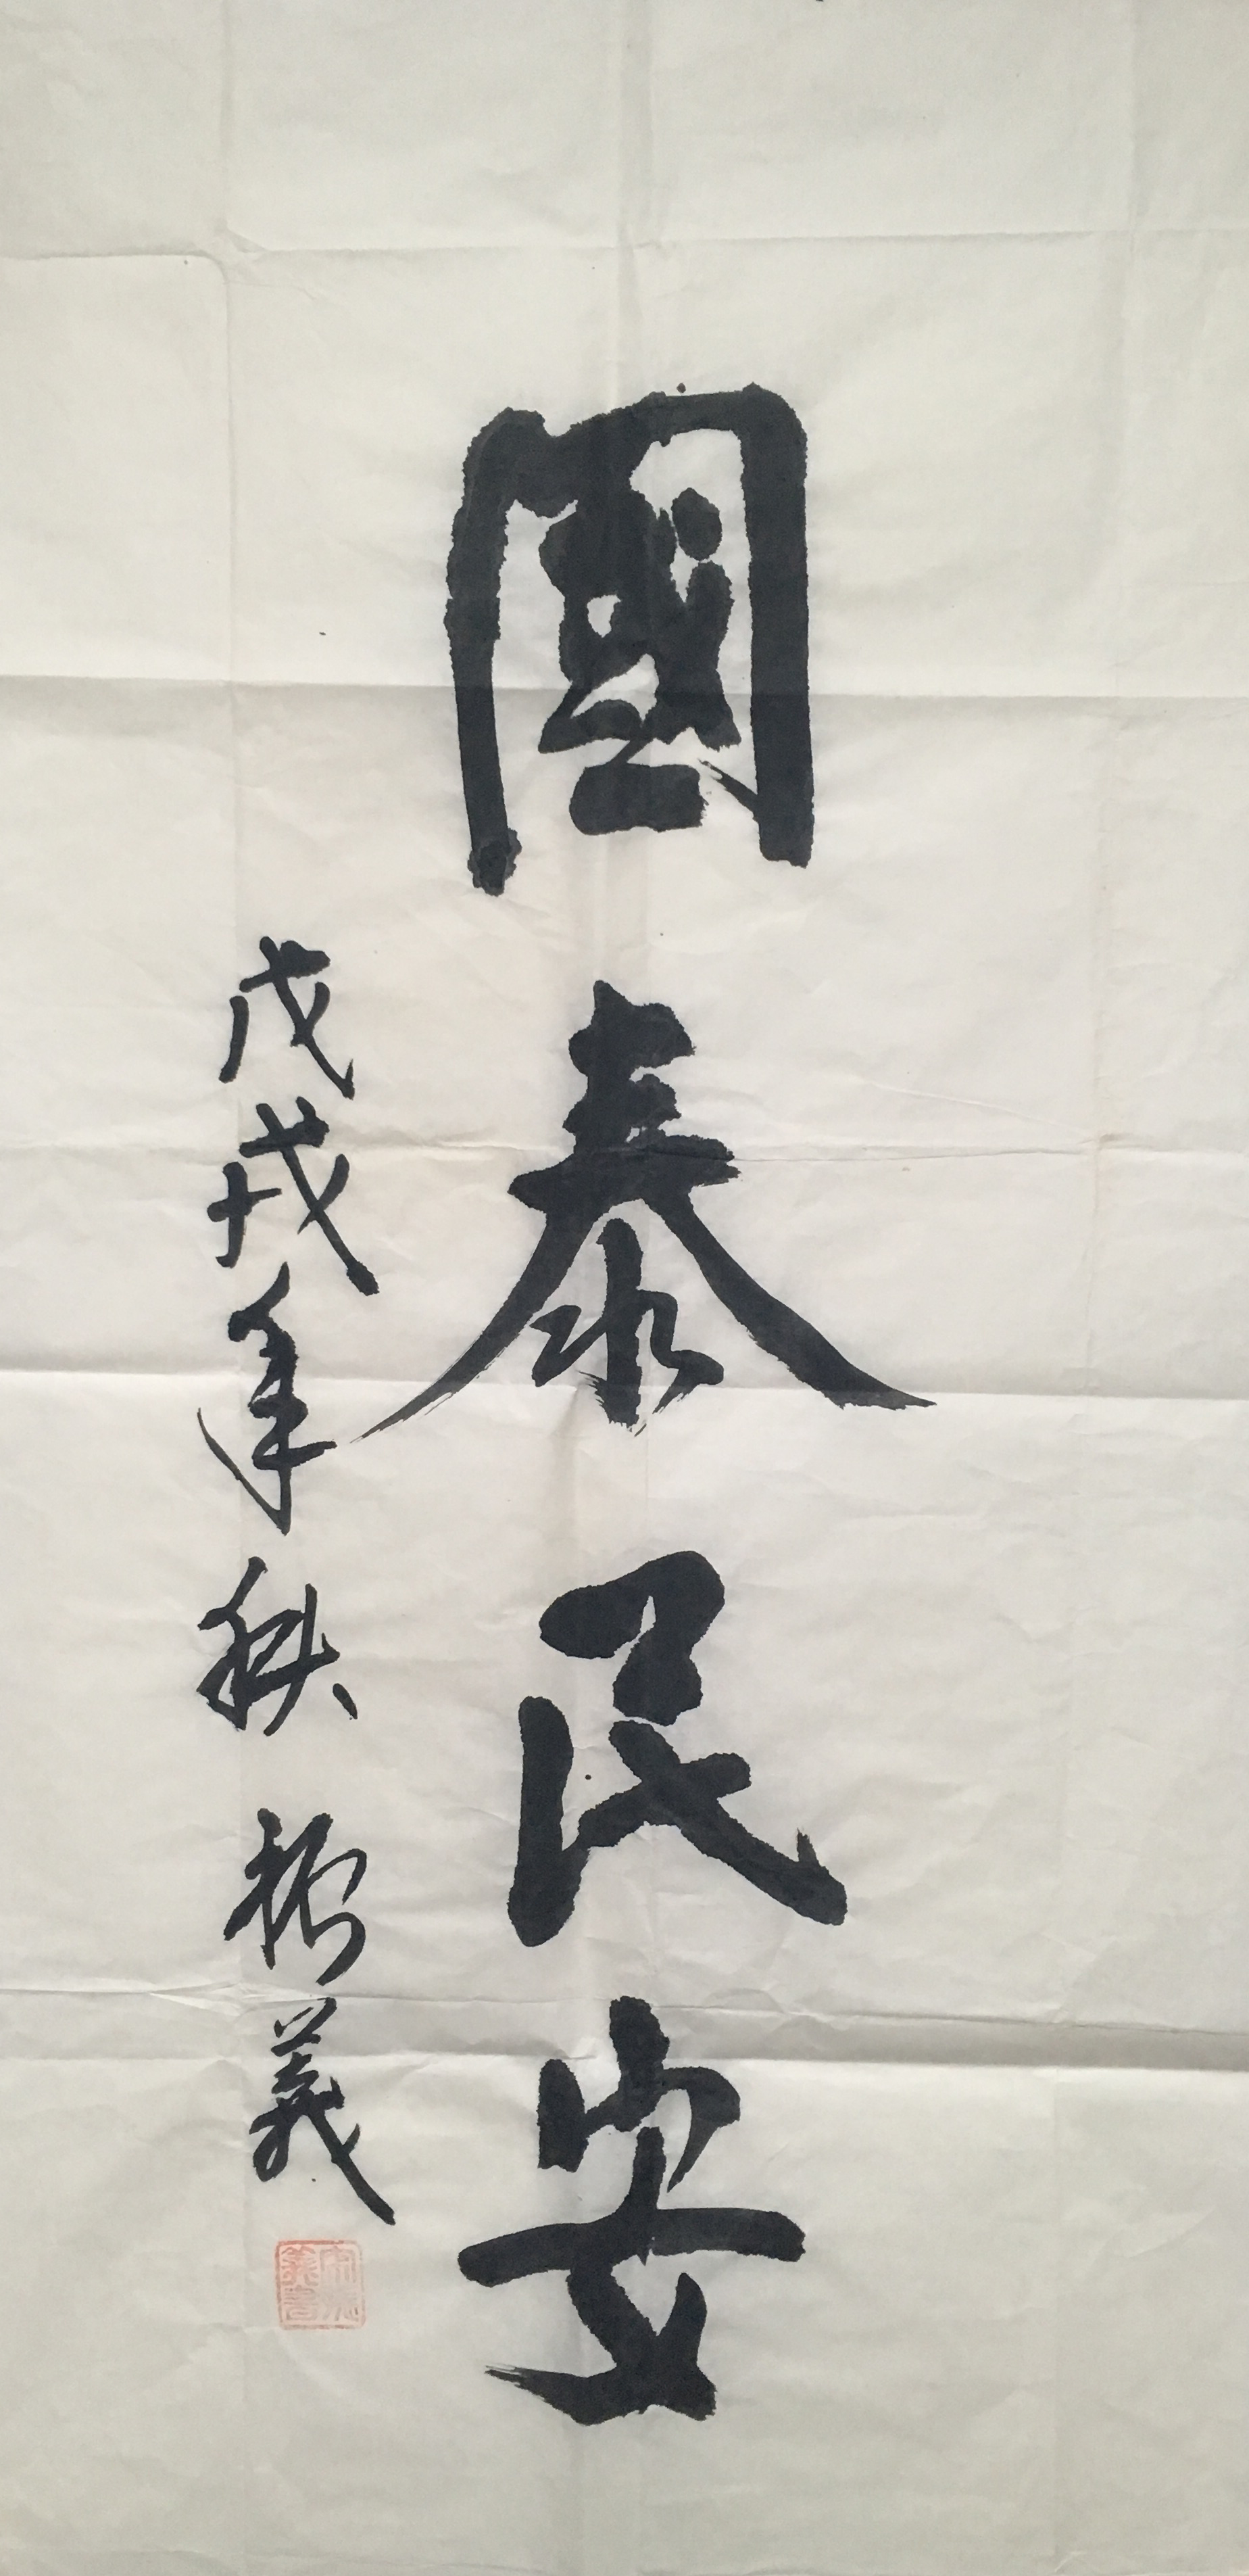 國泰民安
戊戌年秋 振義